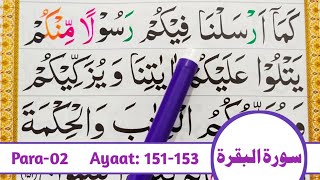 كَمَاۤ اَرْسَلْنَا فِیْكُمْ رَسُوْلًا مِّنْكُمْ
یَتْلُوْا عَلَیْكُمْ اٰیٰتِنَا وَ یُزَكِّیْكُمْ
وَالْحِكْمَةَ
Para-02 Ayaat: 151-153 سورة البقرة